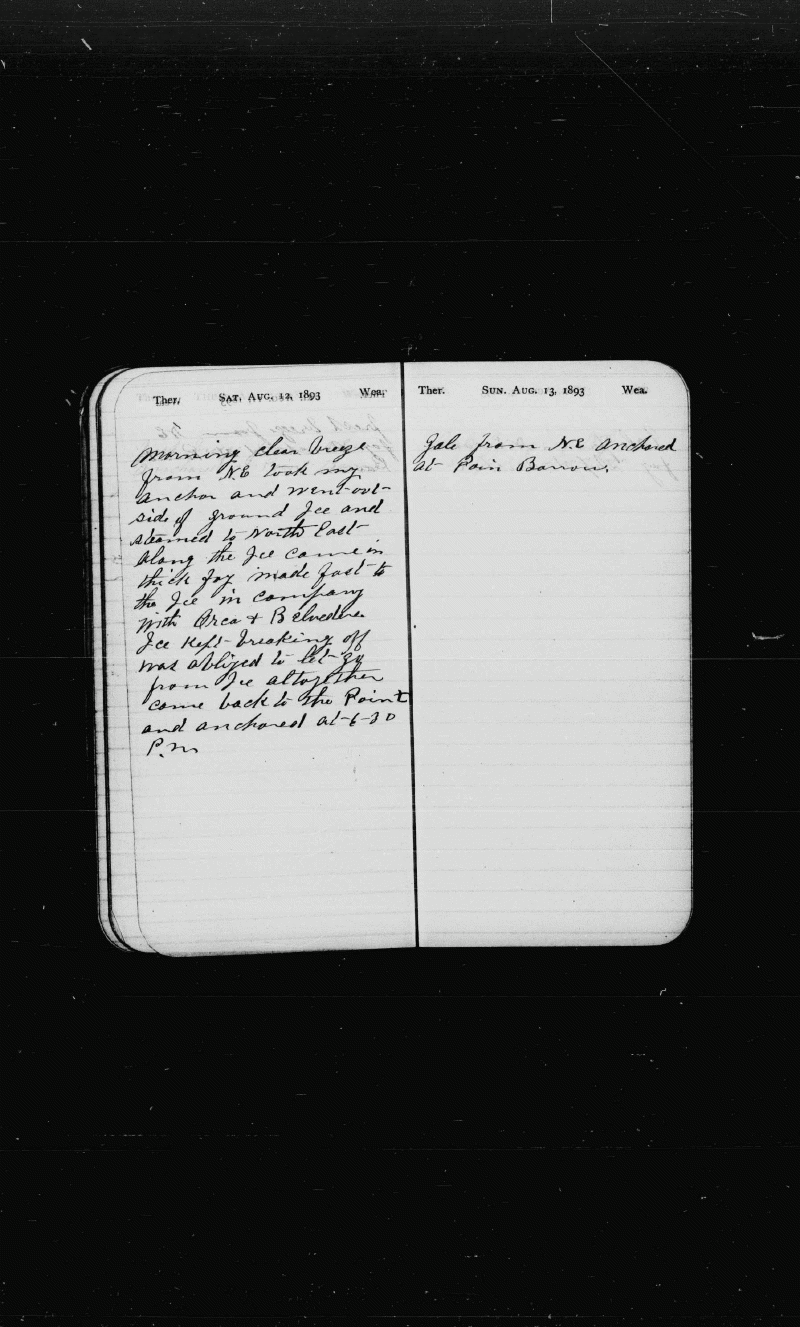 Ther. SAT, AUG. 12, 1893 Wea.
Morning clear breeze
from N.E took my
anchor and went out-
side of ground Ice and
steamed to North East
along the Ice came in
thick fog made fast to
the Ice in company
with Orca + Belvedere
Ice kept breaking off
was obliged to let go
from Ice altogether
came back to the Point
and anchored at 6-30
P.m
Ther. SUN. AUG. 13, 1893 Wea.
Gale from N.E anchored
at Poin Barrow.